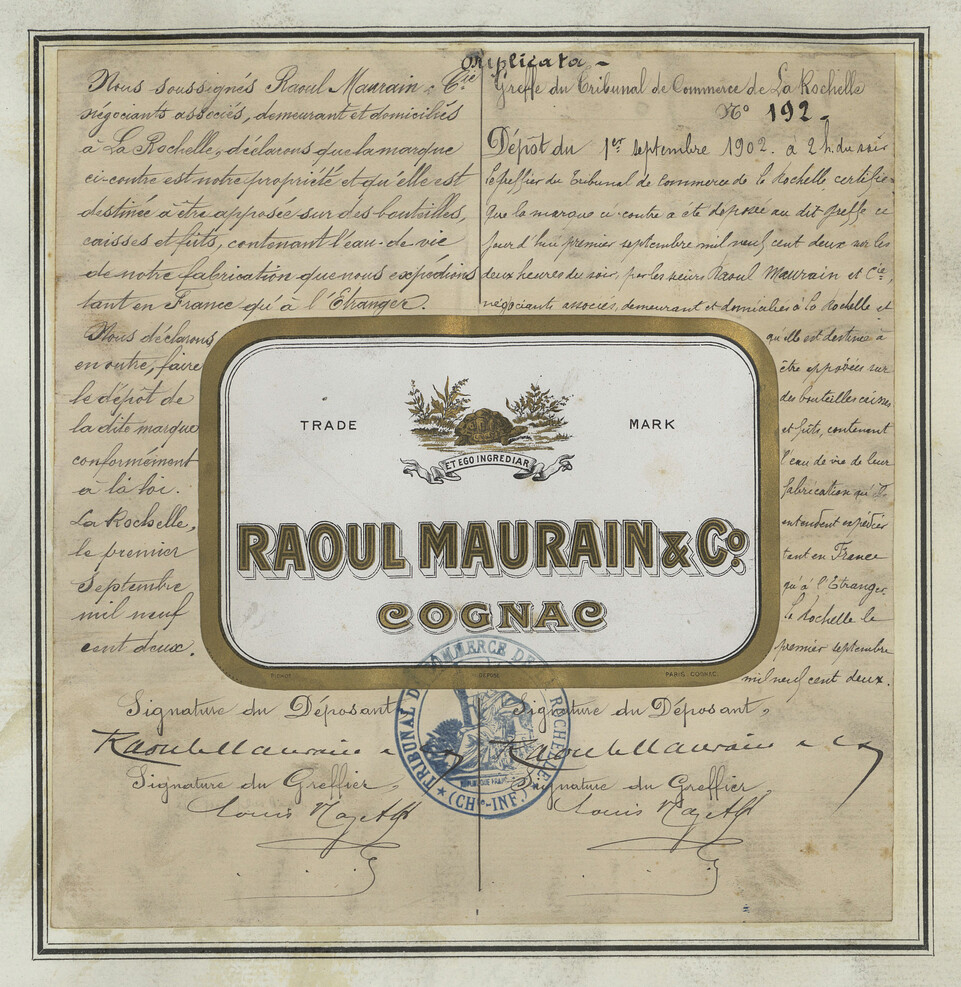 Duplicata -
Nous soussignés Raoul Maurain & Cie
négociants associés, demeurant et domiciliés
à La Rochelle, déclarons que la marque
ci-contre est notre propriété et qu'elle est
destinée à être apposée sur des bouteilles,
caisses et fûts, contenant l'eau-de-vie
de notre fabrication que nous expédions
tant en France qu'à l'Etranger.
Nous déclarons
en outre, faire
le dépôt de
la dite marque
conformément
à la loi.
La Rochelle,
le premier
Septembre
mil neuf
cent deux.
Signature du Déposant
Raoul Maurain & Co
Signature du Greffier,
Greffe du Tribunal de Commerce de La Rochelle
No 192.
Dépôt du 1er septembre 1902. à 2 h. du soir
Le greffier du Tribunal de Commerce de la Rochelle certifie
que la marque ci-contre a été déposée au dit Greffe ce
jourd'hui premier septembre mil neuf cent deux sur les
deux heures du soir, par les sieurs Raoul Maurain et Cie,
négociants associés, demeurant et domiciliés à La Rochelle et
qu'elle est destinée à
être apposée sur
des bouteilles caisses
et fûts, contenant
l'eau de vie de leur
fabrication qu'ils
entendent expédier
tant en France
qu'à l'Etranger.
La Rochelle le
premier septembre
mil neuf cent deux.
Signature du Déposant,
Raoul Maurain & Co
Signature du Greffier,
TRADE MARK
ET EGO INGREDIAR
RAOUL MAURAIN & Co.
COGNAC
DÉPOSÉ
PARIS COGNAC
TRIBUNAL DE COMMERCE DE LA ROCHELLE
(CHte-INF.)